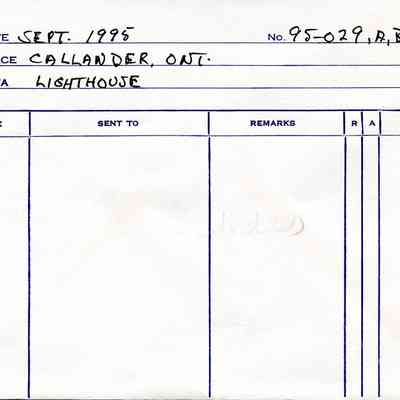 TE SEPT. 1995 No. 95-029, A, B
CE CALLANDER, ONT.
A LIGHTHOUSE
E SENT TO REMARKS R A